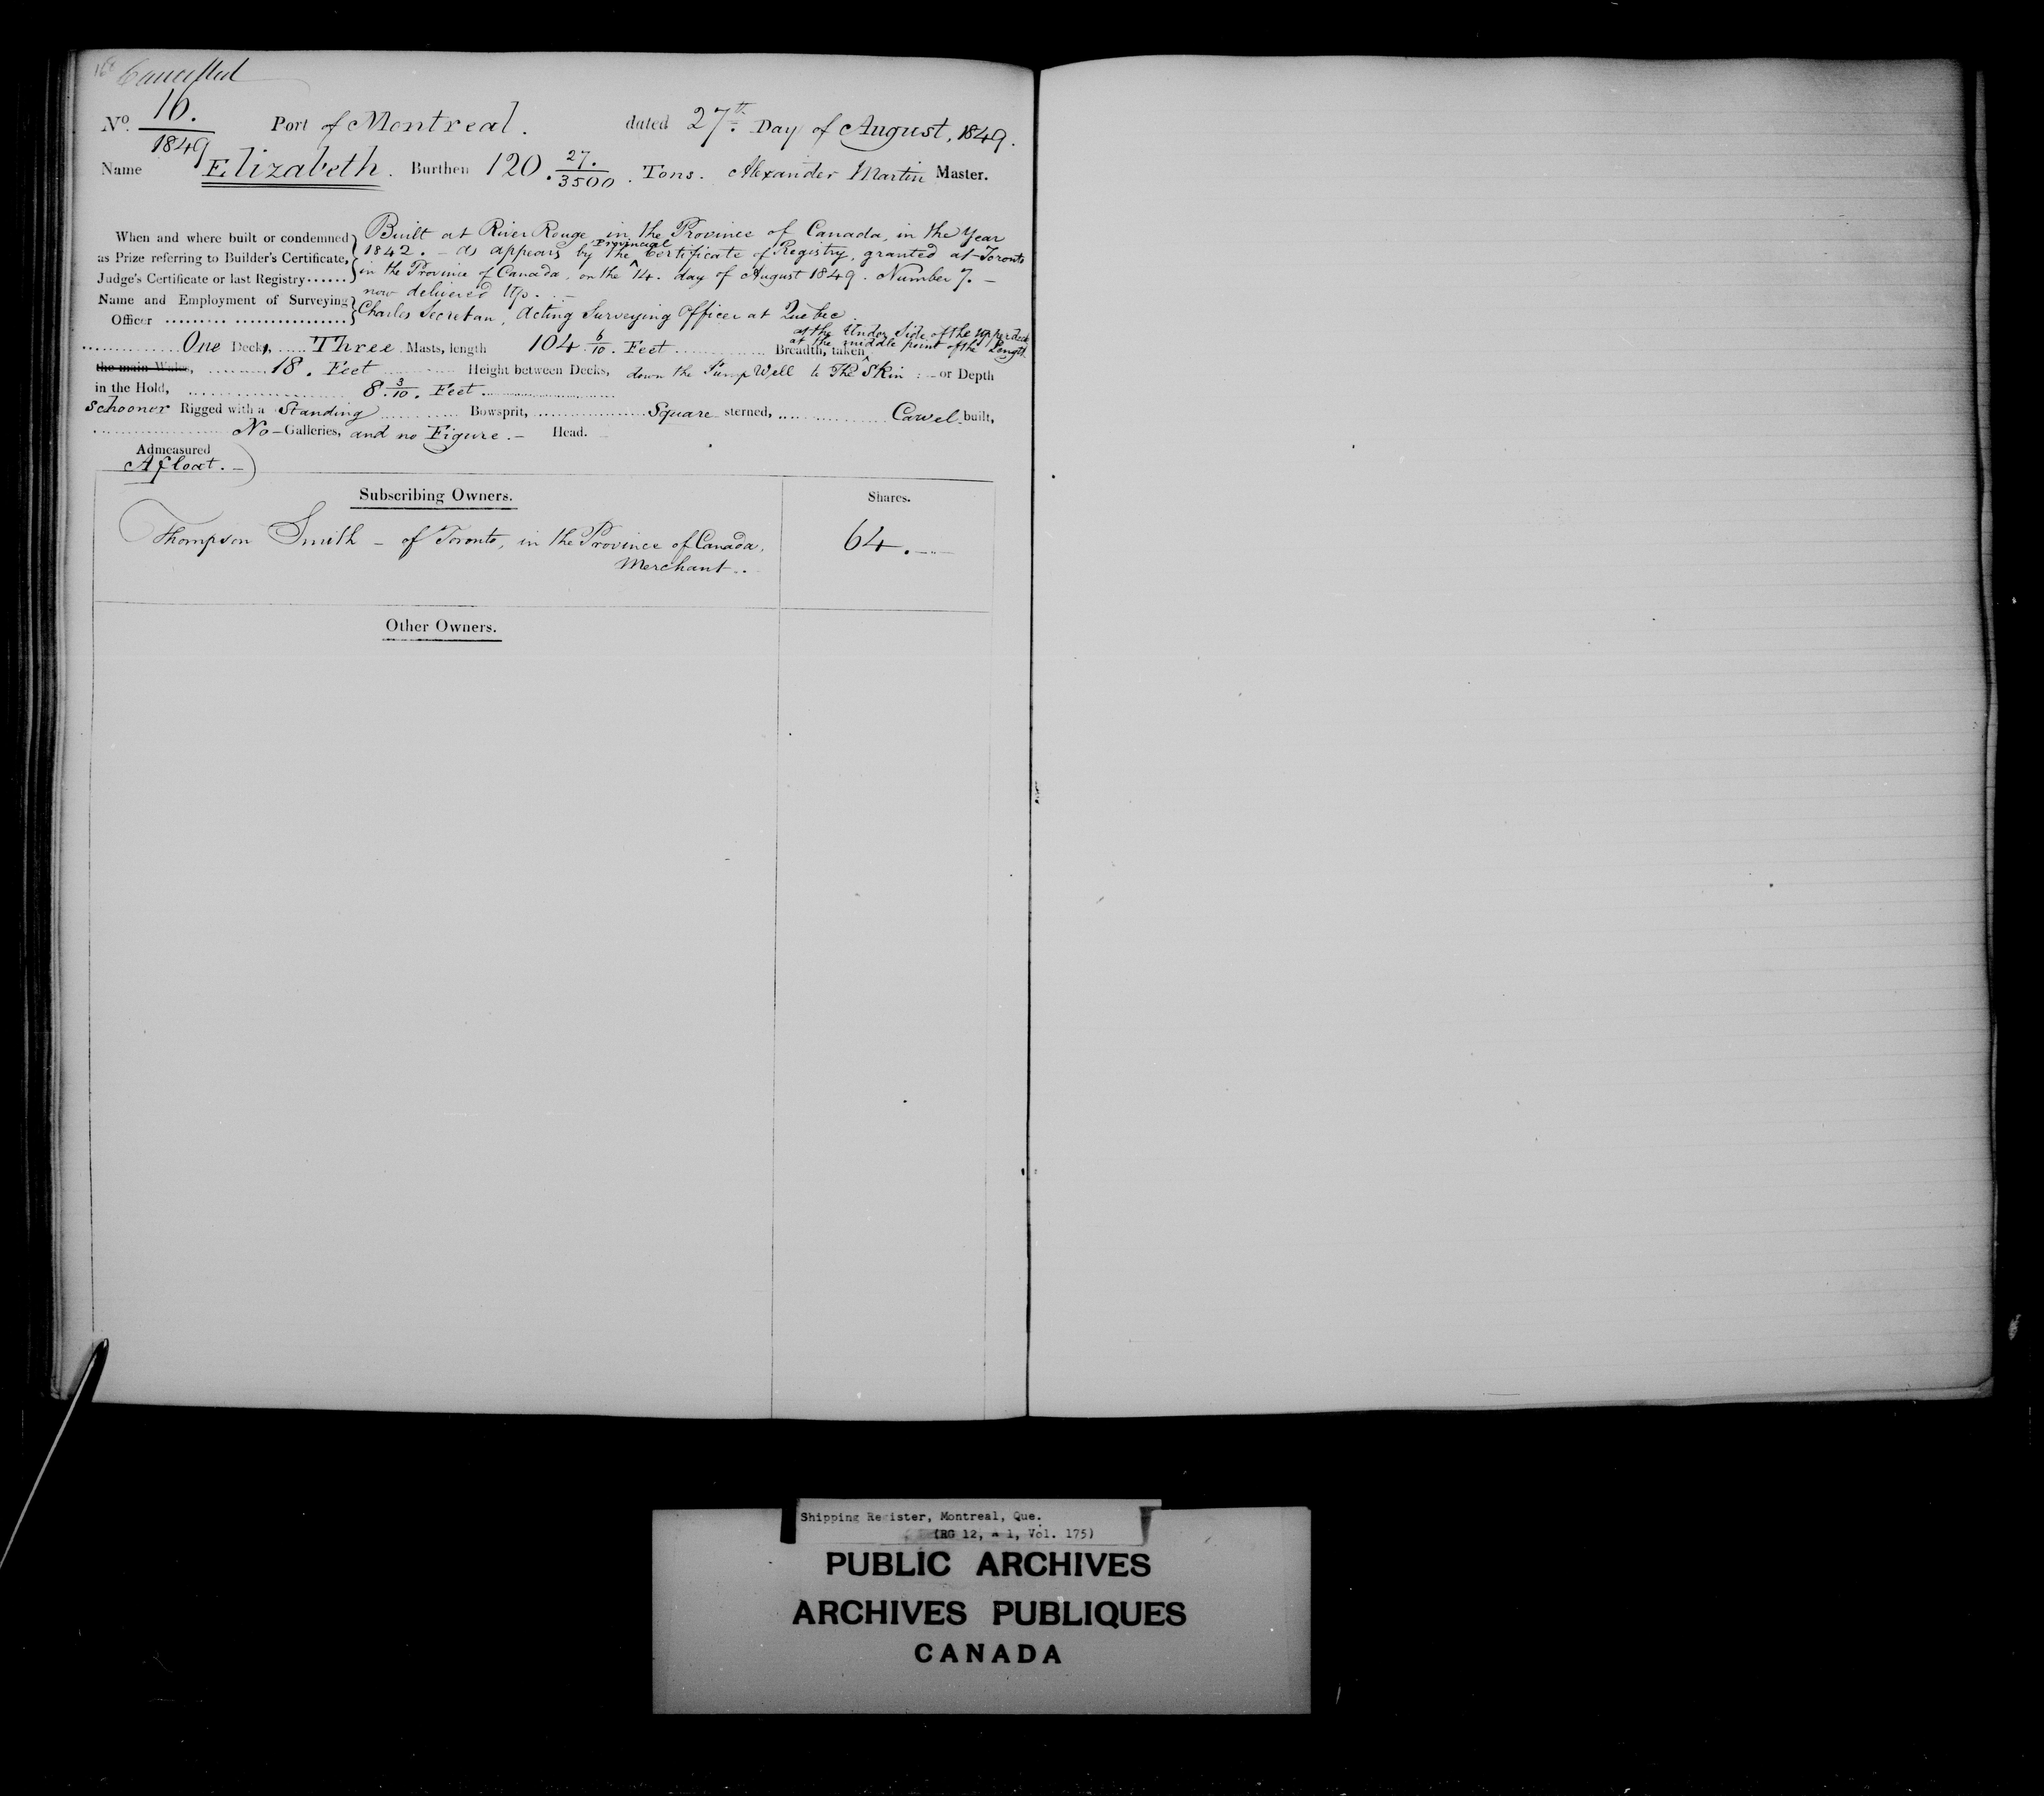 Cancelled
No. 16. Port of Montreal. dated 27th. Day of August, 1849.
1849
Name Elizabeth. Burthen 120. 27./3500. Tons. Alexander Martin Master.
When and where built or condemned Built at River Rouge, in the Province of Canada, in the Year
as Prize referring to Builder's Certificate, 1842. - As appears by the Provincial Certificate of Registry, granted at Toronto
Judge's Certificate or last Registry...... in the Province of Canada, on the 14. day of August 1849. Number 7. -
now delivered Up. -
Name and Employment of Surveying
Officer .......... Charles Secretan, Acting Surveying Officer at Quebec.
at the Under Side of the upper deck
at the middle point of the Length
One Decks, ...... Three Masts, length 104 6/10. Feet .......... Breadth, taken
the main Wales, .......... 18. Feet .......... Height between Decks, down the Pump Well to the Skin: - or Depth
in the Hold, .......... 8. 3/10. Feet ..........
Schooner Rigged with a Standing .......... Bowsprit, .......... Square sterned, .......... Carvel built,
.......... No - Galleries, and no Figure. - Head.
Admeasured
Afloat. -
Subscribing Owners. Shares.
Thompson Smith - of Toronto, in the Province of Canada, 64.
Merchant.
Other Owners.
Shipping Register, Montreal, Que.
(RG 12, A 1, Vol. 175)
PUBLIC ARCHIVES
ARCHIVES PUBLIQUES
CANADA